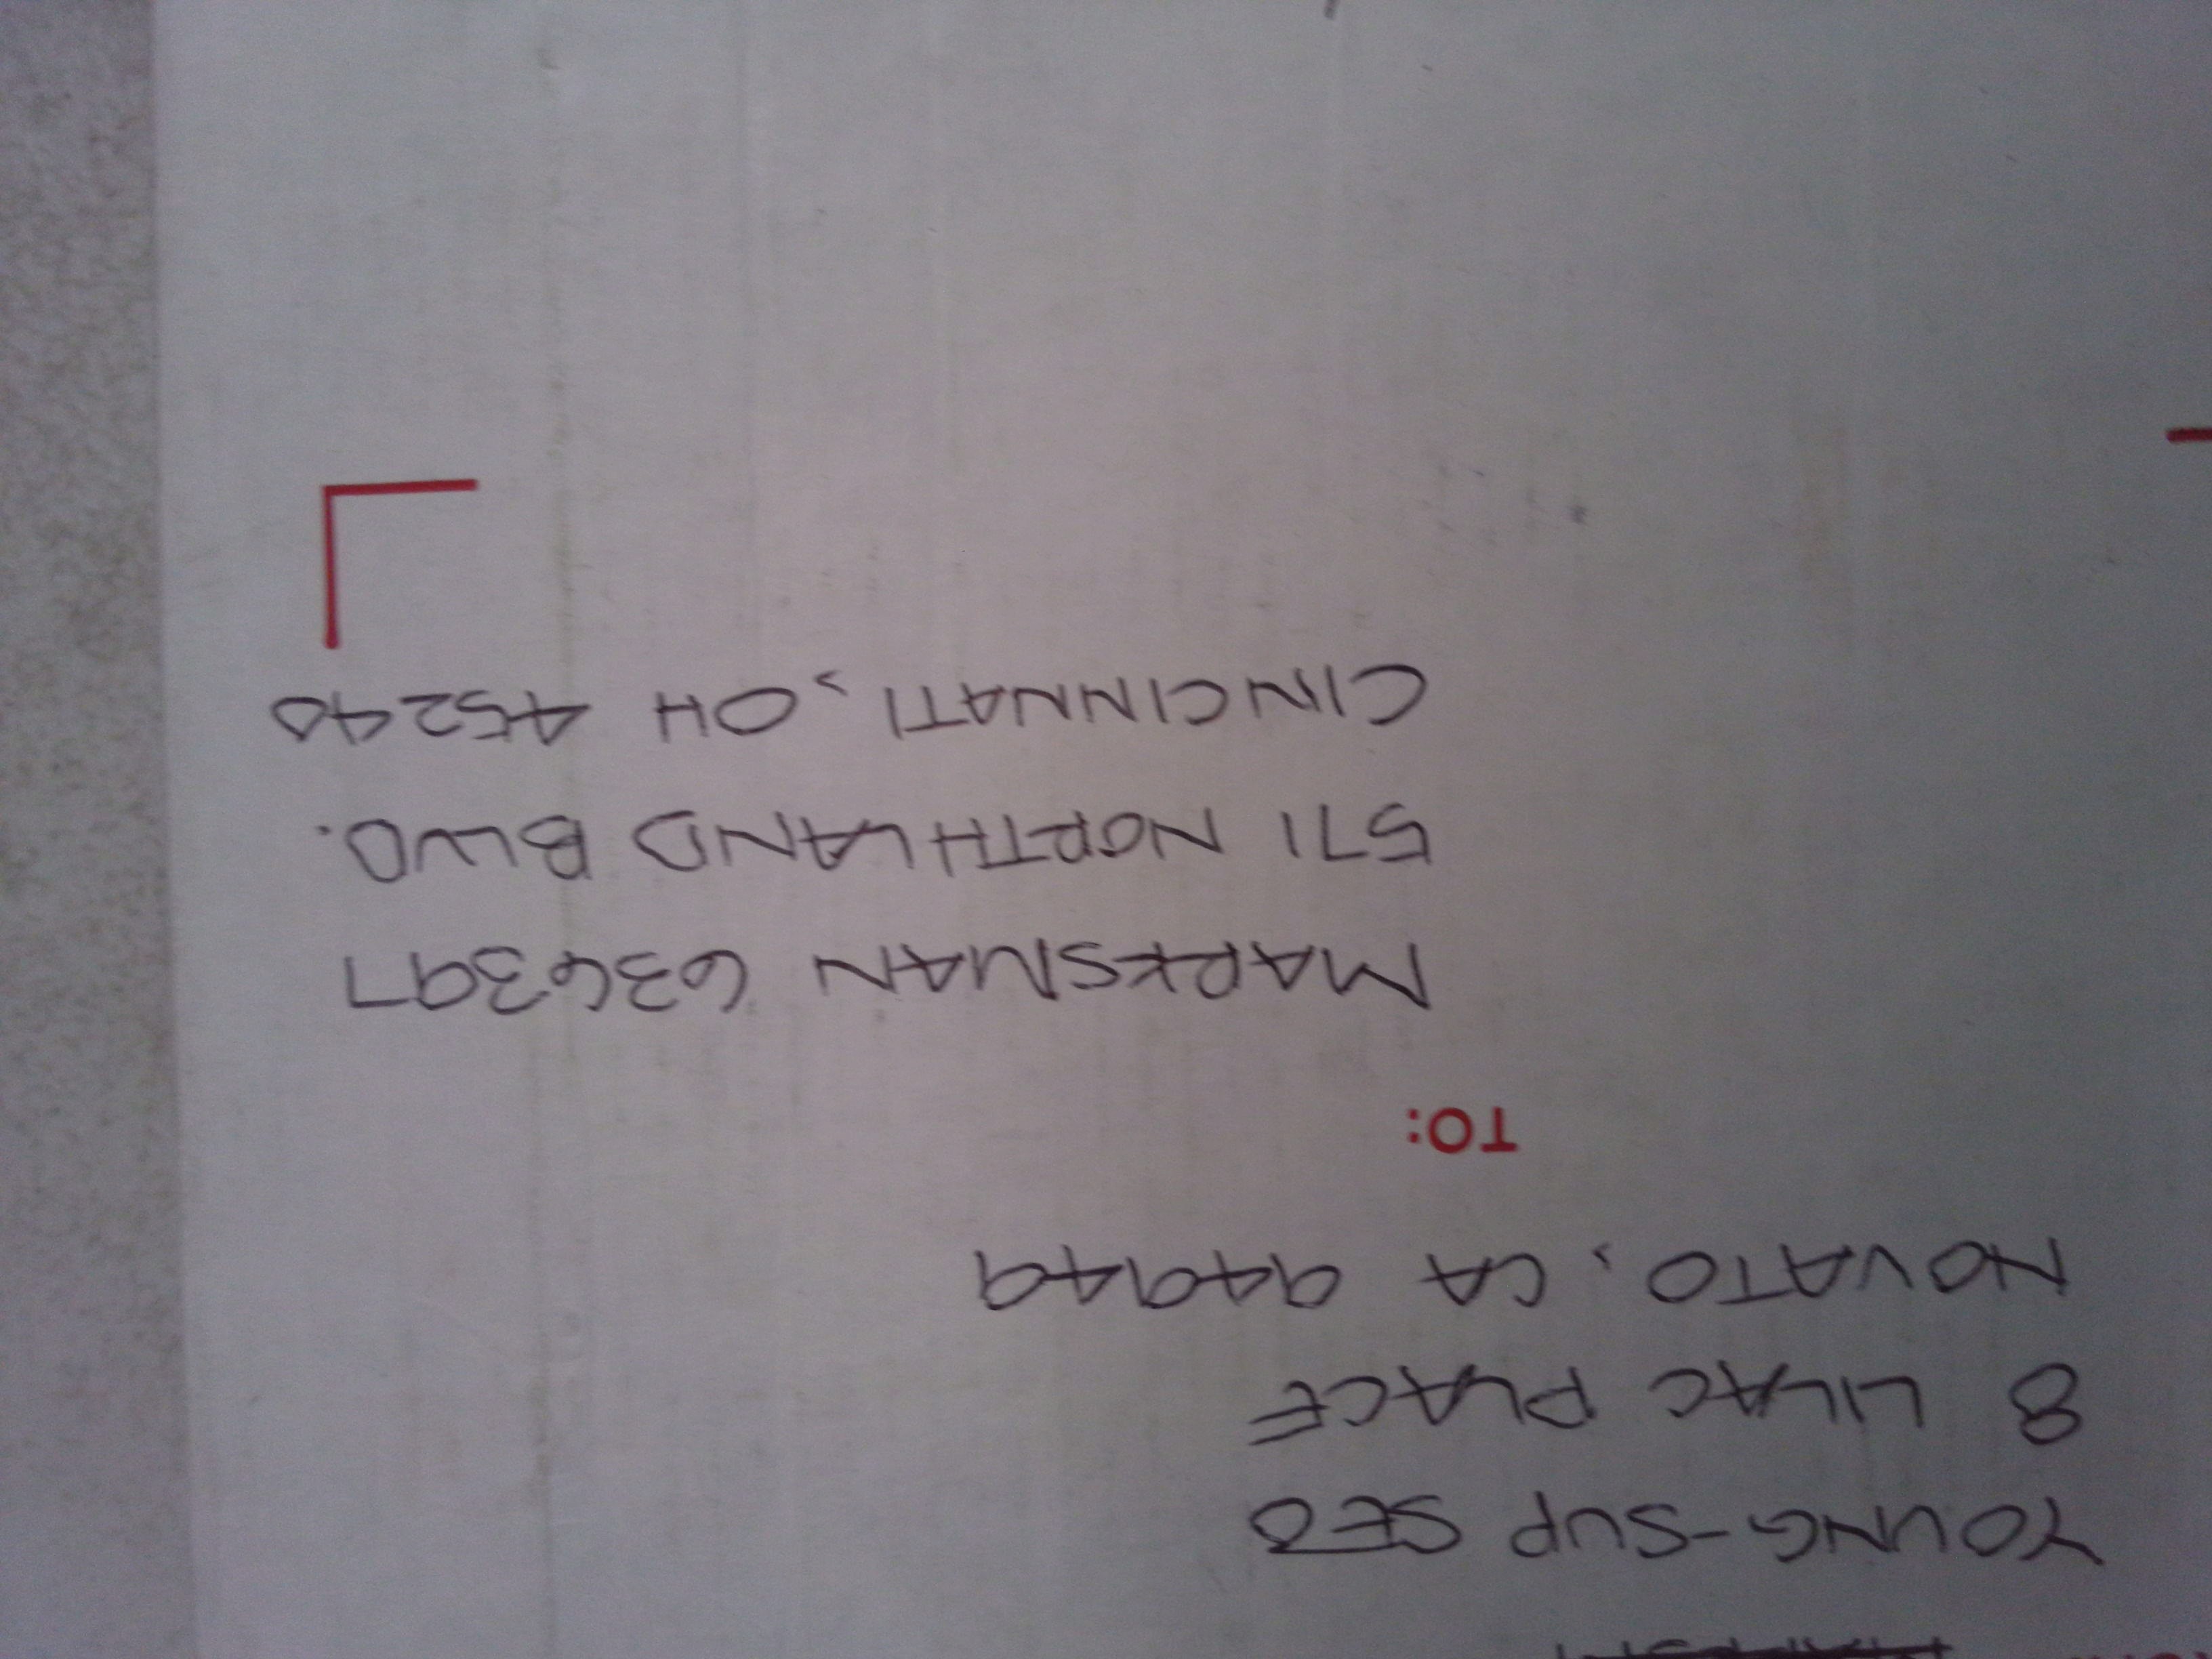 YOUNG-SUP SEO
8 LILAC PLACE
NOVATO, CA 94949
TO:
MARKSMAN 636397
571 NORTHLAND BLVD.
CINCINNATI, OH 45240